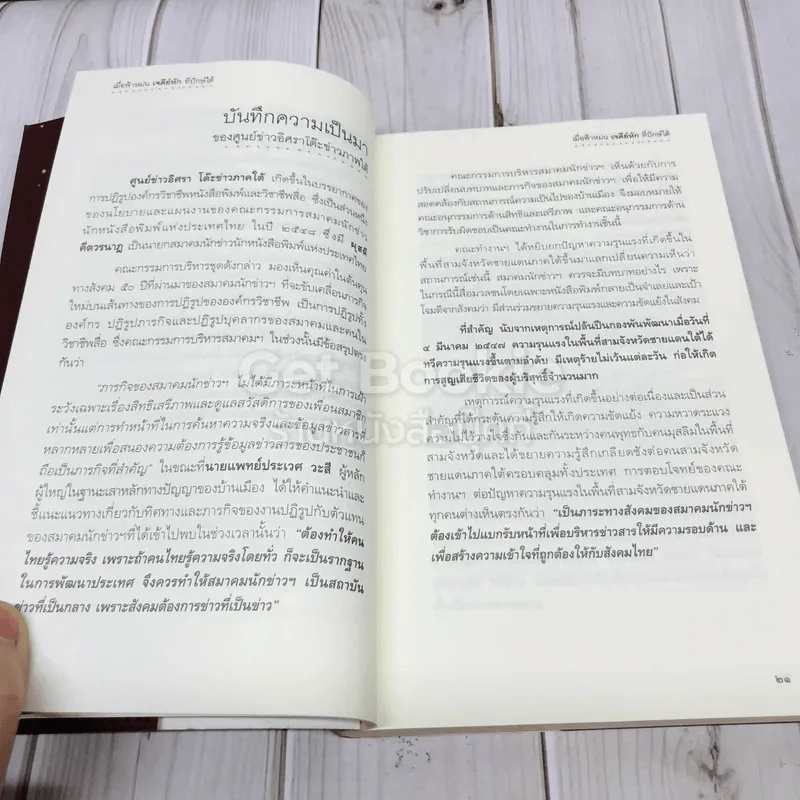 เมื่อฟ้าหม่น เจดีย์หัก ที่ปักษ์ใต้
บันทึกความเป็นมา
ของศูนย์ข่าวอิศราโต๊ะข่าวภาคใต้
ศูนย์ข่าวอิศรา โต๊ะข่าวภาคใต้ เกิดขึ้นในบรรยากาศของ
การปฏิรูปองค์กรวิชาชีพหนังสือพิมพ์และวิชาชีพสื่อ ซึ่งเป็นส่วนหนึ่ง
ของนโยบายและแผนงานของคณะกรรมการสมาคมนักข่าว
นักหนังสือพิมพ์แห่งประเทศไทย ในปี ๒๕๔๘ ซึ่งมี ผุสดี
คีตวรนาฏ เป็นนายกสมาคมนักข่าวนักหนังสือพิมพ์แห่งประเทศไทย
คณะกรรมการบริหารชุดดังกล่าว มองเห็นคุณค่าในต้นทุน
ทางสังคม ๕๐ ปีที่ผ่านมาของสมาคมนักข่าวฯ ที่จะขับเคลื่อนภารกิจ
ใหม่บนเส้นทางของการปฏิรูปขององค์กรวิชาชีพ เป็นการปฏิรูปทั้ง
องค์กร ปฏิรูปภารกิจและปฏิรูปบุคลากรของสมาคมและคนใน
วิชาชีพสื่อ ซึ่งคณะกรรมการบริหารสมาคมฯ ในช่วงนั้นมีข้อสรุปตรง
กันว่า
"ภารกิจของสมาคมนักข่าวฯ ไม่ได้มีภาระหน้าที่ในการเฝ้า
ระวังเฉพาะเรื่องสิทธิเสรีภาพและดูแลสวัสดิการของเพื่อนสมาชิก
เท่านั้นแต่การทำหน้าที่ในการค้นหาความจริงและข้อมูลข่าวสาร
หลากหลายเพื่อสนองความต้องการรู้ข้อมูลข่าวสารของประชาชนก็
ถือเป็นภารกิจที่สำคัญ" ในขณะที่นายแพทย์ประเวศ วะสี ผู้หลัก
ผู้ใหญ่ในฐานะเสาหลักทางปัญญาของบ้านเมือง ได้ให้คำแนะนำและ
ชี้แนะแนวทางเกี่ยวกับทิศทางและภารกิจของงานปฏิรูปกับตัวแทน
ของสมาคมนักข่าวฯที่ได้เข้าไปพบในช่วงเวลานั้นว่า "ต้องทำให้คน
ไทยรู้ความจริง เพราะถ้าคนไทยรู้ความจริงโดยทั่ว ก็จะเป็นรากฐาน
ในการพัฒนาประเทศ จึงควรทำให้สมาคมนักข่าวฯ เป็นสถาบัน
ข่าวที่เป็นกลาง เพราะสังคมต้องการข่าวที่เป็นข่าว"
เมื่อฟ้าหม่น เจดีย์หัก ที่ปักษ์ใต้
คณะกรรมการบริหารสมาคมนักข่าวฯ เห็นด้วยกับการ
ปรับเปลี่ยนบทบาทและภารกิจของสมาคมนักข่าวฯ เพื่อให้มีความ
สอดคล้องกับสถานการณ์ความเป็นไปของบ้านเมือง จึงมอบหมายให้
คณะอนุกรรมการด้านสิทธิและเสรีภาพ และคณะอนุกรรมการด้าน
วิชาการรับผิดชอบเป็นคณะทำงานในการทำงานชิ้นนี้
คณะทำงานฯ ได้หยิบยกปัญหาความรุนแรงที่เกิดขึ้นใน
พื้นที่สามจังหวัดชายแดนภาคใต้ขึ้นมาแลกเปลี่ยนความเห็นว่า
สถานการณ์เช่นนี้ สมาคมนักข่าวฯ ควรจะมีบทบาทอย่างไร เพราะ
ในกรณีนี้สื่อมวลชนโดยเฉพาะหนังสือพิมพ์กลายเป็นจำเลยและเป้า
โจมตีจากสังคมว่า มีส่วนร่วมขยายความรุนแรงและความขัดแย้งในสังคม
ที่สำคัญ นับจากเหตุการณ์ปล้นปืนกองพันพัฒนาเมื่อวันที่
๔ มีนาคม ๒๕๔๗ ความรุนแรงในพื้นที่สามจังหวัดชายแดนใต้ได้
ทวีความรุนแรงขึ้นตามลำดับ มีเหตุร้ายไม่เว้นแต่ละวัน ก่อให้เกิด
การสูญเสียชีวิตของผู้บริสุทธิ์จำนวนมาก
เหตุการณ์ความรุนแรงที่เกิดขึ้นอย่างต่อเนื่องและเป็นส่วน
สำคัญที่ได้กระตุ้นความรู้สึกให้เกิดความขัดแย้ง ความหวาดระแวง
ความไม่ไว้วางใจซึ่งกันและกันระหว่างคนพุทธกับคนมุสลิมในพื้นที่
สามจังหวัดและได้ขยายความรู้สึกเกลียดชังต่อคนสามจังหวัด
ชายแดนภาคใต้ครอบคลุมทั้งประเทศ การตอบโจทย์ของคณะ
ทำงานฯ ต่อปัญหาความรุนแรงในพื้นที่สามจังหวัดชายแดนภาคใต้
ทุกคนต่างเห็นตรงกันว่า "เป็นภาระทางสังคมของสมาคมนักข่าวฯ
ต้องเข้าไปแบกรับหน้าที่เพื่อบริหารข่าวสารให้มีความรอบด้าน และ
เพื่อสร้างความเข้าใจที่ถูกต้องให้กับสังคมไทย"
๒๑
Get Bookie
ร้านหนังสือมือที่